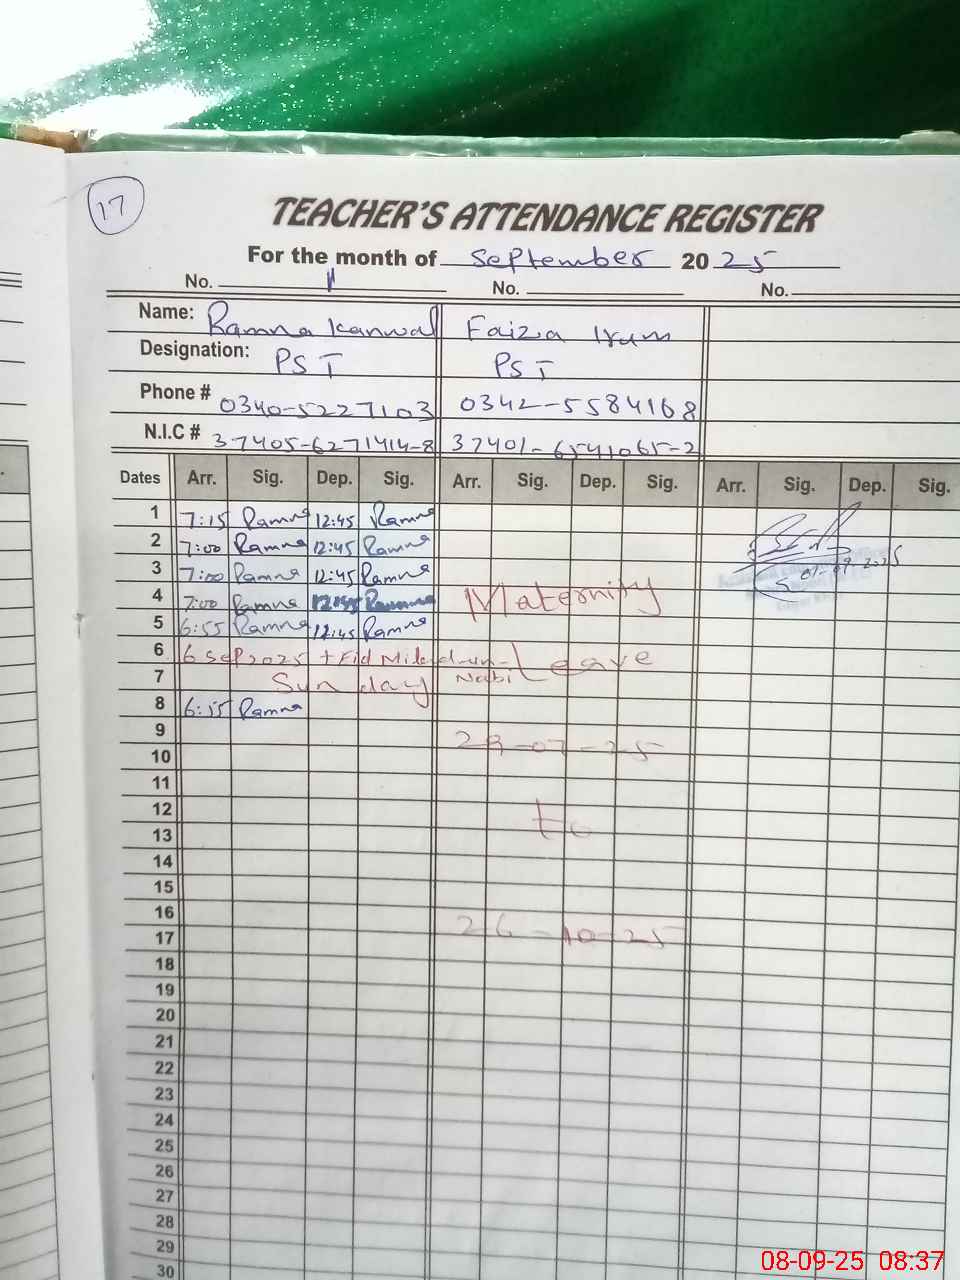 17
TEACHER'S ATTENDANCE REGISTER
For the month of September 20 25
No. No. No.
Name: Ramna Kanwal Faiza Irum
Designation: PST PST
Phone # 0340-5227103 0342-5584168
N.I.C # 37405-6271414-8 37401-6541065-2
Dates Arr. Sig. Dep. Sig. Arr. Sig. Dep. Sig. Arr. Sig. Dep. Sig.
1 7:15 Ramna 12:45 Ramna
2 7:00 Ramna 12:45 Ramna
3 7:00 Ramna 12:45 Ramna 01-09-2025
4 7:00 Ramna 12:45 Ramna Maternity
5 6:55 Ramna 12:45 Ramna
6 6 Sep 2025 + Eid Milad-un-Nabi Leave
7 Sunday
8 6:55 Ramna
9 29-07-25
10
11
12 to
13
14
15
16 26-10-25
17
18
19
20
21
22
23
24
25
26
27
28
29
30
08-09-25 08:37